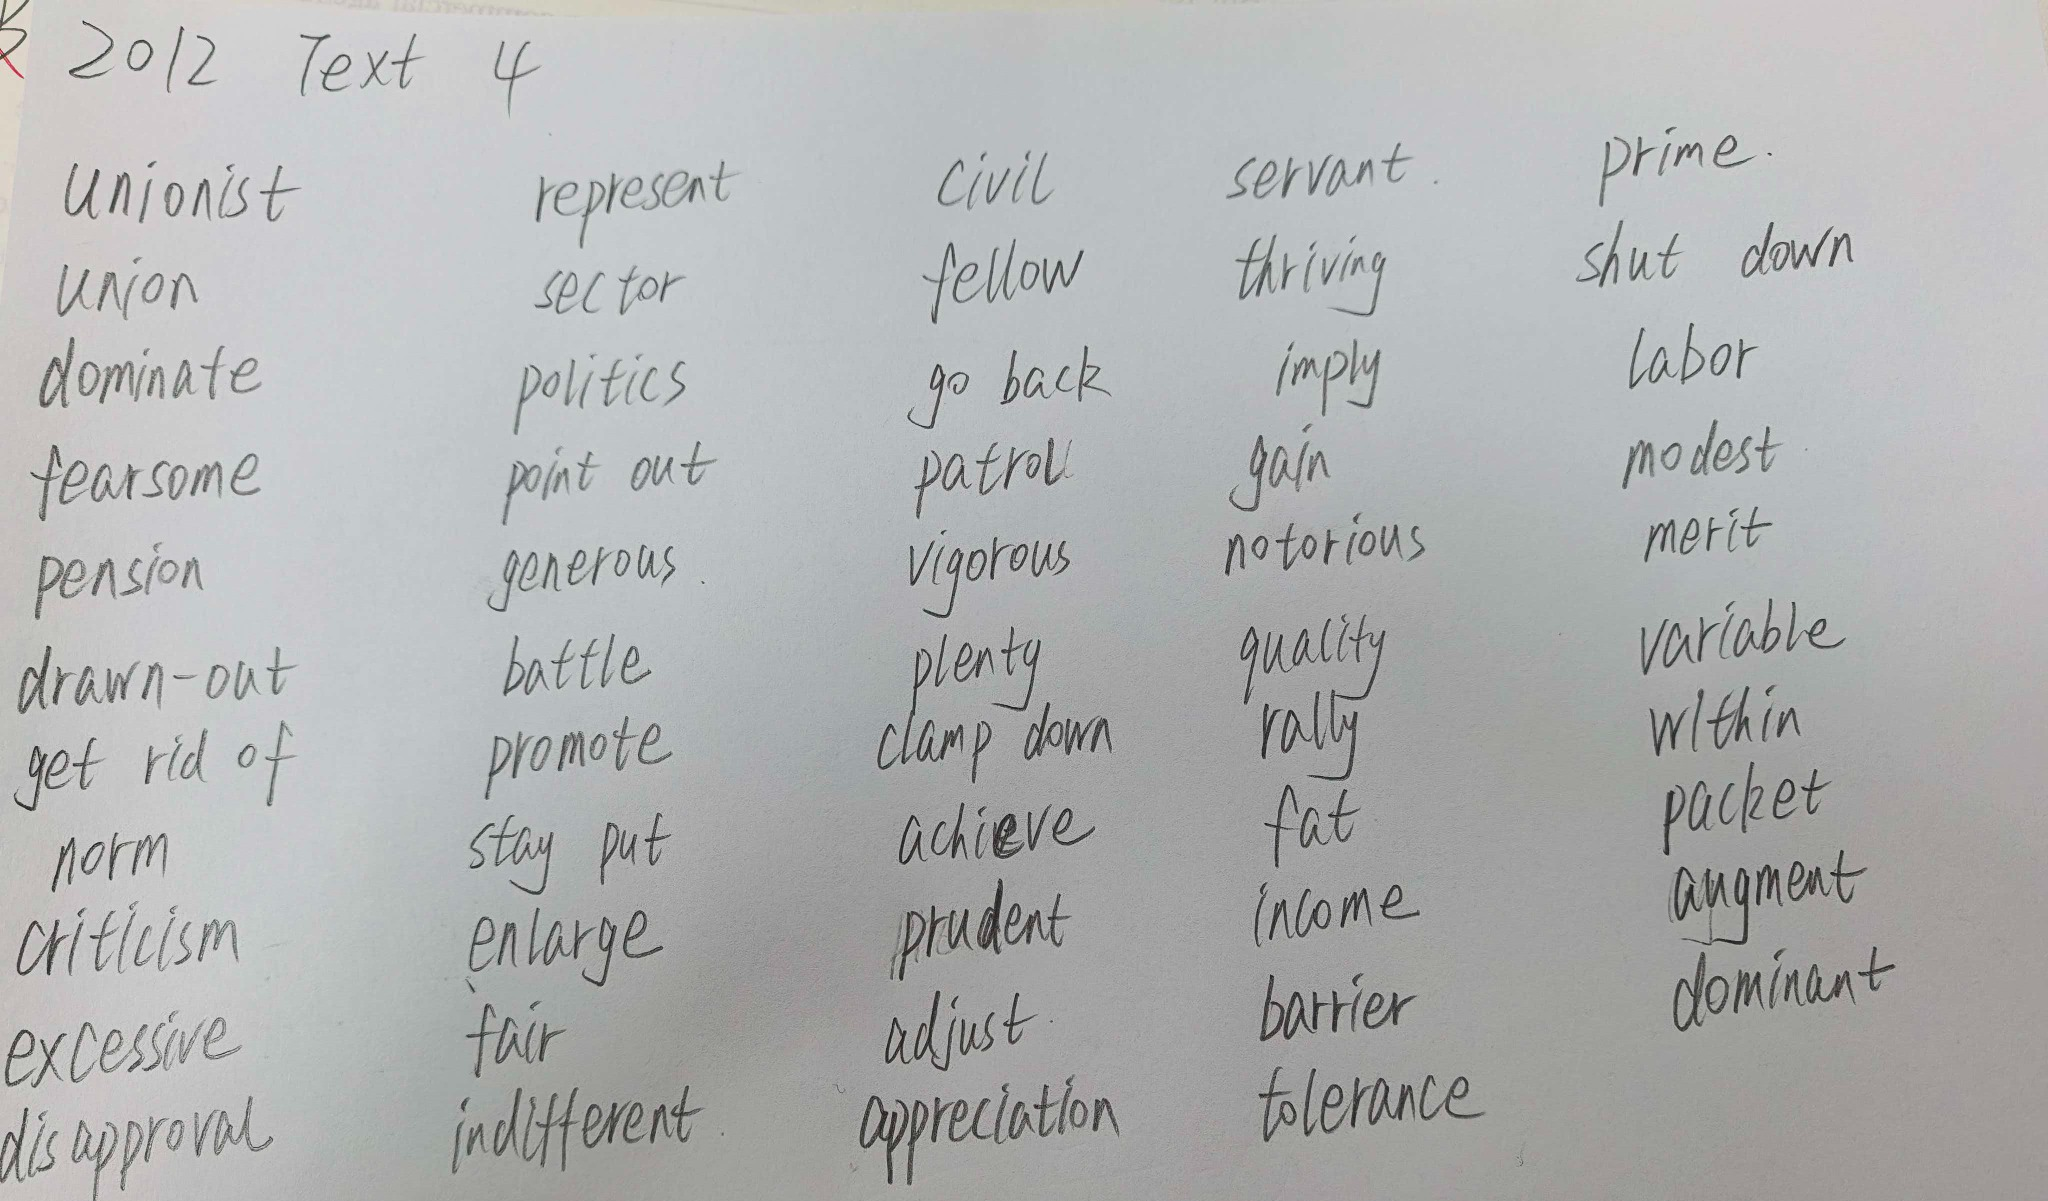 2012 Text 4
unionist represent civil servant. prime.
union sector fellow thriving shut down
dominate politics go back imply labor
fearsome point out patrol gain modest
pension generous. vigorous notorious merit
drawn-out battle plenty quality variable
get rid of promote clamp down rally within
norm stay put achieve fat packet
criticism enlarge prudent income augment
excessive fair adjust barrier dominant
disapproval indifferent appreciation tolerance